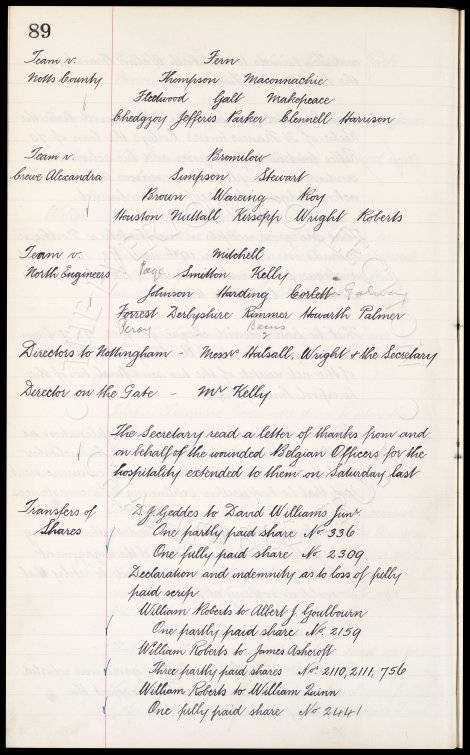 89
Team v. Fern
Notts County Thompson Maconnachie
Fleetwood Galt Makepeace
Chedgzoy Jefferis Parker Clennell Harrison
Team v. Bromilow
Crewe Alexandra Simpson Stewart
Brown Wareing Roy
Houston Nuttall Kirsopp Wright Roberts
Team v. Mitchell
North Engineers Page Smitton Kelly
Johnson Harding Corlett Galway
Forrest Derbyshire Rimmer Howarth Palmer
Percy
Directors to Nottingham - Messrs Halsall, Wright & the Secretary
Director on the Gate - Mr Kelly
The Secretary read a letter of thanks from and
on behalf of the wounded Belgian Officers for the
hospitality extended to them on Saturday last
Transfers of D. J. Geddes to David Williams Junr
Shares One partly paid share No. 336
One fully paid share No 2309
Declaration and indemnity as to loss of fully
paid scrip
William Roberts to Albert J. Goulbourn
One partly paid share No. 2159
William Roberts to James Ashcroft
Three partly paid shares Nos. 2110, 2111, 756
William Roberts to William Quinn
One fully paid share No 2441